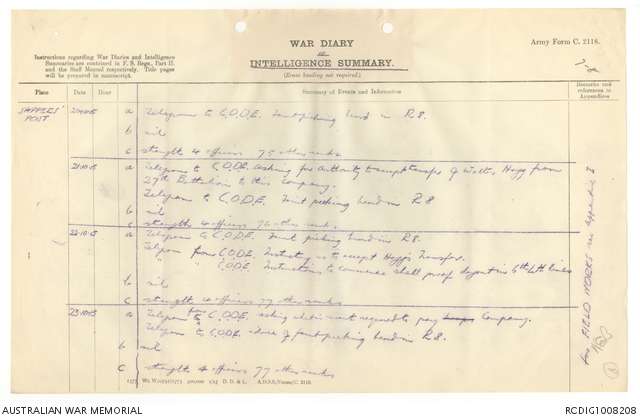 WAR DIARY
or
INTELLIGENCE SUMMARY.
(Erase heading not required.)
Army Form C. 2118.
Instructions regarding War Diaries and Intelligence
Summaries are contained in F. S. Regs., Part II.
and the Staff Manual respectively. Title pages
will be prepared in manuscript.
7-8
Place Date Hour Summary of Events and Information Remarks and references to Appendices
SAPPERS' POST 20.10.15 a Telegram to C.O.D.E. Faint picking heard in R8.
b nil
c strength 4 officers 75 other ranks
21.10.15 a Telegram to C.O.D.E. asking for authority to accept transfer of Hogg from
27th Battalion to this Company.
Telegram to C.O.D.E. Faint picking heard in R8
b nil
c strengths 4 officers 76 other ranks.
22.10.15 a Telegram to C.O.D.E. Faint picking heard in R8.
Telegram from C.O.D.E. us to accept Hogg's Transfer.
" " C.O.D.E. Instructions to commence shell proof in lines
b nil
c strength 4 officers 77 other ranks
23.10.15 a Telegram to C.O.D.E. asking required to pay Company.
Telegram to C.O.D.E. of faint picking heard in R8.
b nil
c strengths 4 officers 77 other ranks
for FIELD WORKS see Appendix I
AUSTRALIAN WAR MEMORIAL
RCDIG1008208